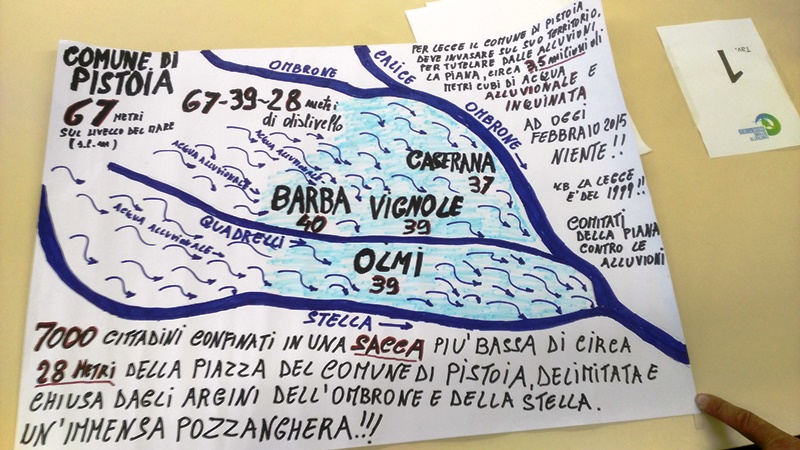 COMUNE DI
PISTOIA
67 METRI
SUL LIVELLO DEL MARE
(s.l.m)
67-39-28 metri
di dislivello
OMBRONE
CALICE
OMBRONE
PER LEGGE IL COMUNE DI PISTOIA
DEVE INVASARE SUL SUO TERRITORIO,
PER TUTELARE DALLE ALLUVIONI
LA PIANA, CIRCA 3,5 milioni di
METRI CUBI DI ACQUA
ALLUVIONALE E
INQUINATA
AD OGGI
FEBBRAIO 2015
NIENTE!!
N.B. LA LEGGE
E' DEL 1999!!
COMITATI
DELLA PIANA
CONTRO LE
ALLUVIONI
1
ACQUA ALLUVIONALE
ACQUA ALLUVIONALE
ACQUA ALLUVIONALE
CASERANA
37
BARBA
40
VIGNOLE
39
QUADRELLI
OLMI
39
STELLA
7000 CITTADINI CONFINATI IN UNA SACCA PIU' BASSA DI CIRCA
28 METRI DELLA PIAZZA DEL COMUNE DI PISTOIA, DELIMITATA E
CHIUSA DAGLI ARGINI DELL'OMBRONE E DELLA STELLA.
UN'IMMENSA POZZANGHERA!!!